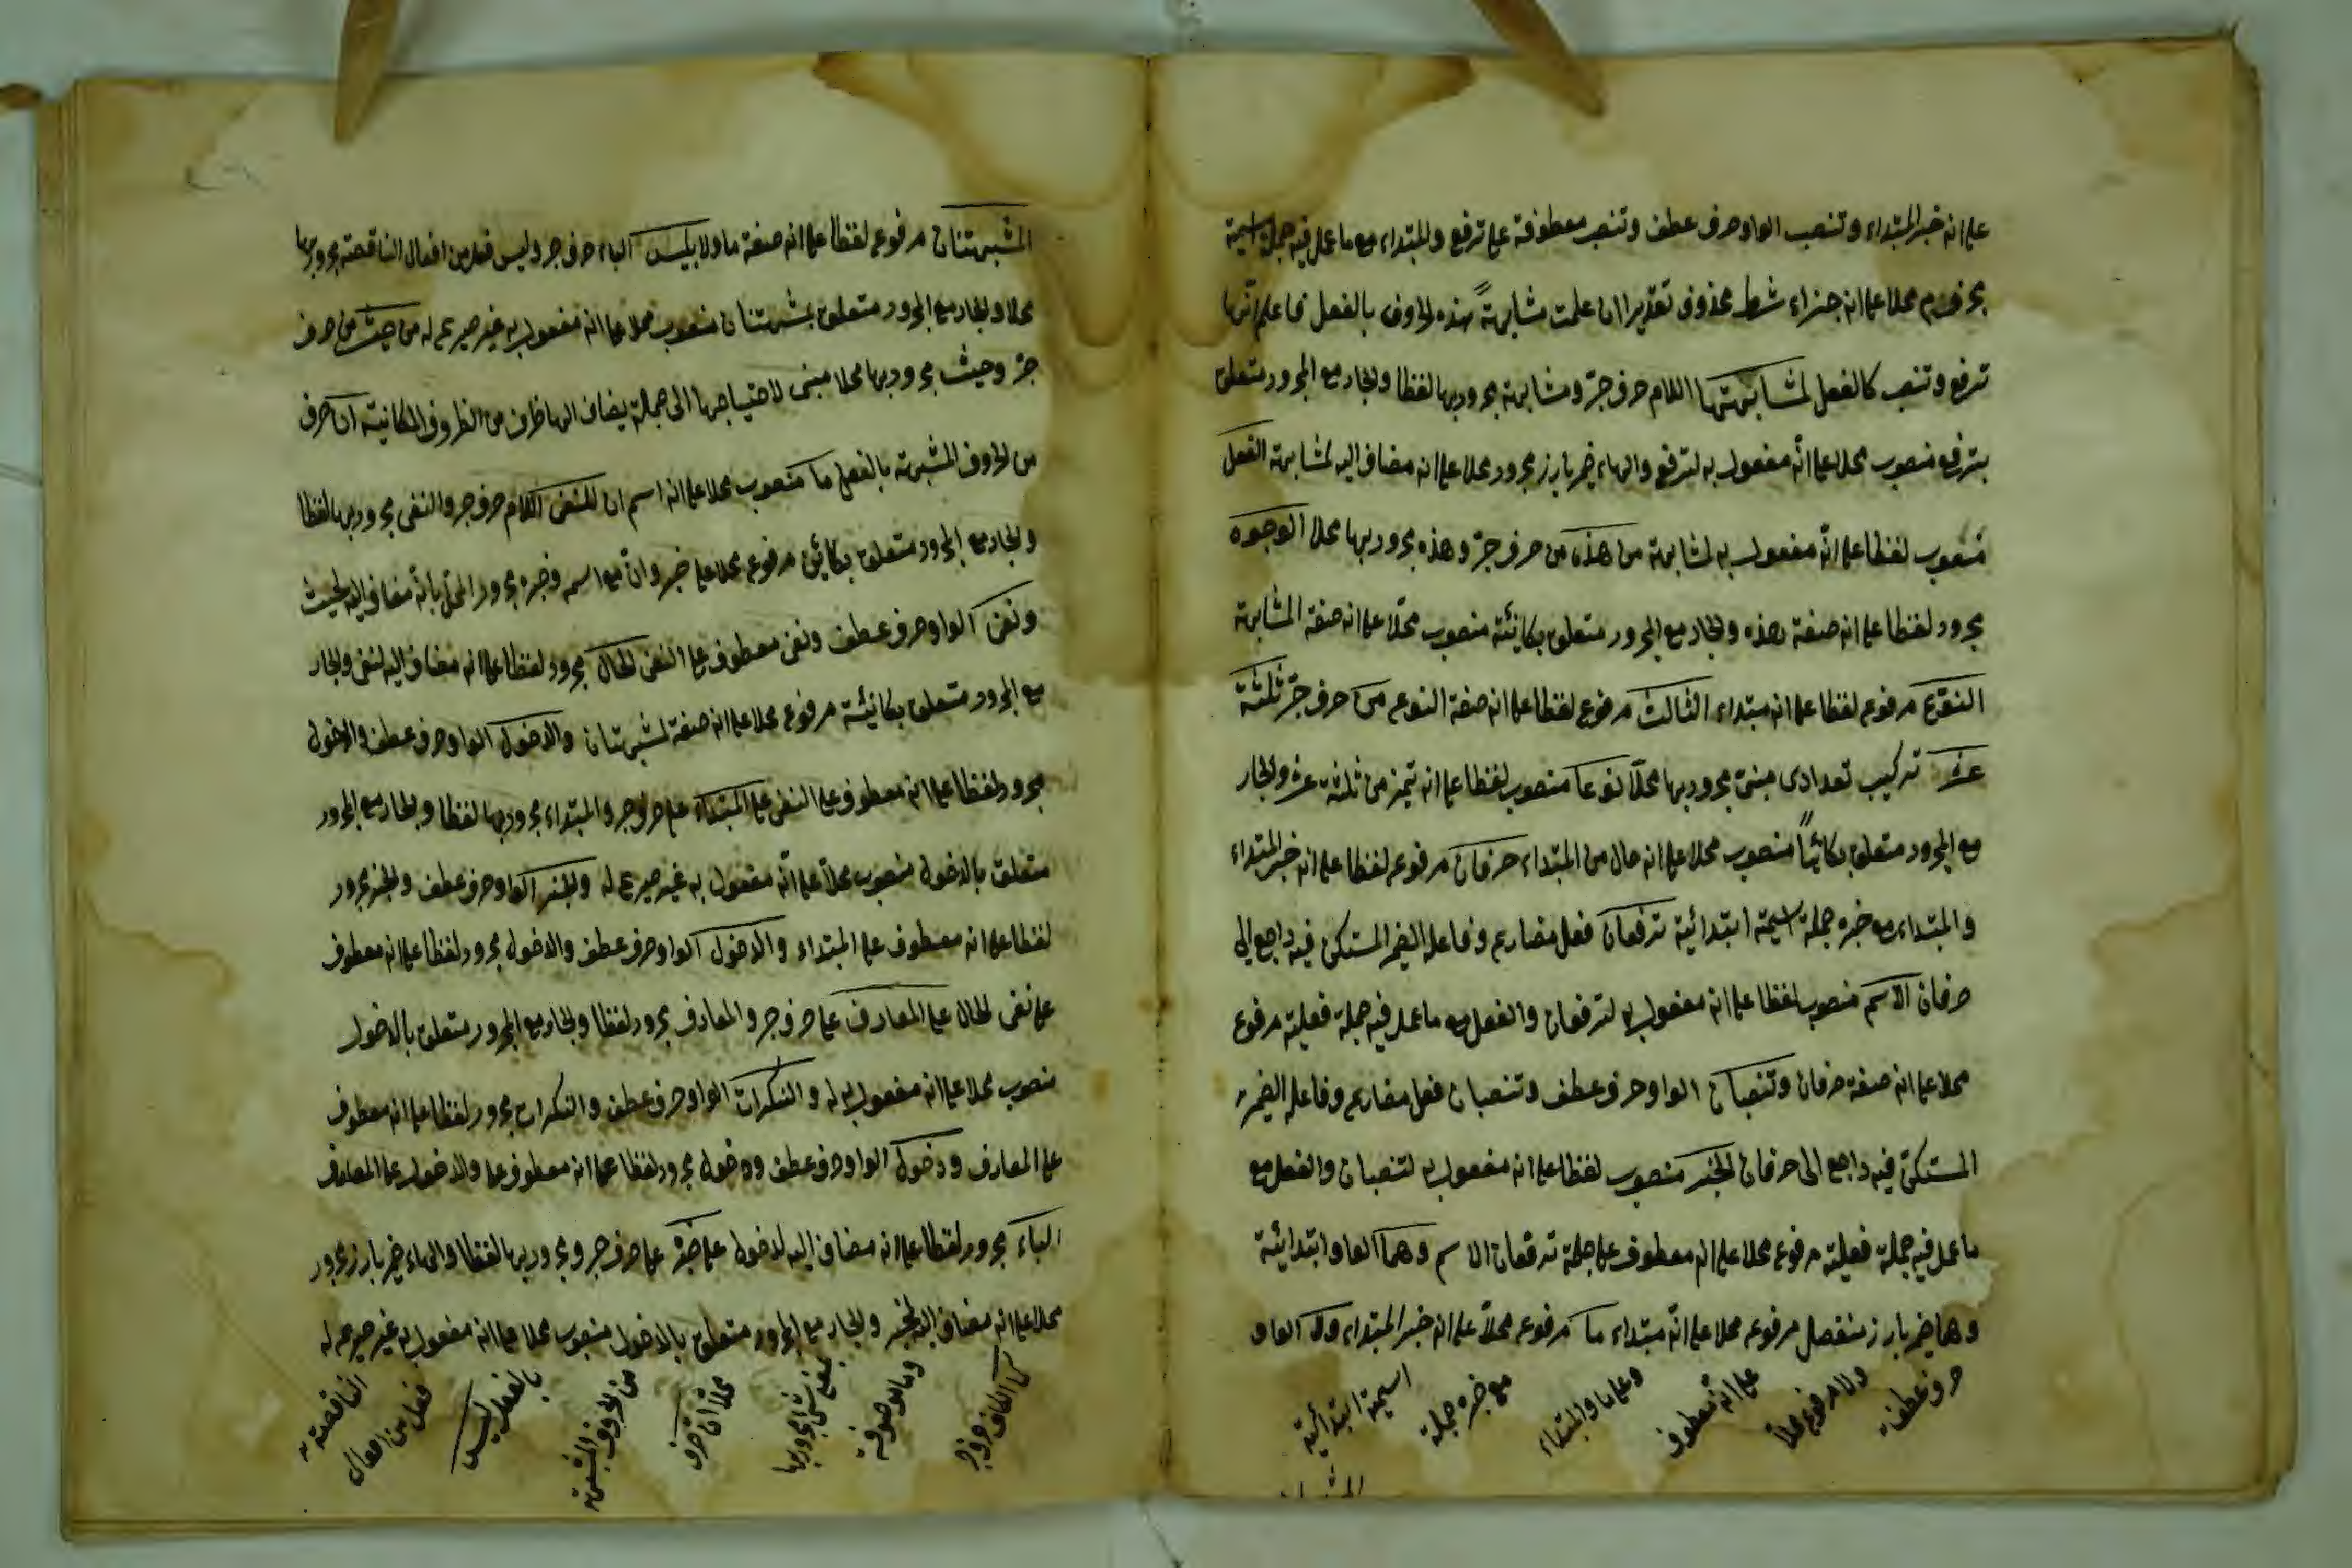 على انه خبر المبتداء وتنصب الواو حرف عطف وتنصب معطوفة على ترفع والمبتداء مع ما عمل فيه جملة اسمية
محلا على انه جزاء شرط محذوف تقديرا ان علمت مشابهة هذه الحروف بالفعل فاعلم انها
ترفع وتنصب كالفعل لمشابهتها اللام حرف جرّ ومشابهة مجرور بها لفظا والجار مع المجرور متعلق
بترفع منصوب محلا على انّه مفعول به لترفع والهاء ضمير بارز مجرور محلا على انه مضاف اليه لمشابهة الفعل
منصوب لفظا على انّه مفعول به لمشابهة من هذه من حرف جرّ وهذه مجرور بها محلا الوجوه
مجرور لفظا على انه صفة لهذه والجار مع المجرور متعلق بكائنة منصوب محلّا على انه صفة المشابهة
النوع مرفوع لفظا على انه مبتداء الثالث مرفوع لفظا على انه صفة النوع من حرف جرّ ثلثة
عشر تركيب تعدادى مبنىّ مجرور بها محلّا نوعا منصوب لفظا على انه تميز من ثلثة عشر والجار
مع المجرور متعلق بكائنًا منصوب محلا على انه حال من المبتداء حرفان مرفوع لفظا على انه خبر المبتداء
والمبتداء مع خبره جملة اسمية ابتدائية ترفعان فعل مضارع وفاعله الضمير المستكن فيه راجع الى
حرفان الاسم منصوب لفظا على انه مفعول به لترفعان والفعل مع ما عمل فيه جملة فعلية مرفوع
محلا على انه صفة حرفان وتنصبان الواو حرف عطف وتنصبان فعل مضارع وفاعله الضمير
المستكن فيه راجع الى حرفان الخبر منصوب لفظا على انه مفعول به لتنصبان والفعل مع
ما عمل فيه جملة فعلية مرفوع محلا على انه معطوف على جملة ترفعان الاسم وهما الواو ابتدائية
وهما ضمير بارز منفصل مرفوع محلا على انّه مبتداء ما مرفوع محلّا على انه خبر المبتداء ولا الواو
حرف عطف
ولا مرفوع محلاً
على انّه معطوف
وعلى ما والمبتداء
مع خبره جملة
اسمية ابتدائية
المشبهتان مرفوع لفظا على انه صفة ما ولا بليس الباء حرف جر وليس فعل من افعال الناقصة مجرور بها
محلا والجار مع المجرور متعلق بمشبهتان منصوب محلا على انه مفعول به غير صريح له من حيث من حرف
جرّ وحيث مجرور بها محلا مبنى لاحتياجها الى جملة يضاف اليها ظرف من الظروف المكانية ان حرف
من الحروف المشبهة بالفعل ما منصوب محلا على انه اسم ان للنفى اللام حرف جر والنفى مجرور بها لفظا
والجار مع المجرور متعلق بكائن مرفوع محلا على خبر وانّ مع اسمه وخبره مجرور المحل بانّه مضاف اليه لحيث
ونفى الواو حرف عطف ونفى معطوف على النفى الحال مجرور لفظا على انه مضاف اليه لنفى والجار
مع المجرور متعلق بكائنة مرفوع محلا على انه صفة لمشبهتان والدخول الواو حرف عطف والدخول
مجرور لفظا على انه معطوف على النفى على المبتداء على حرف جر والمبتداء مجرور بها لفظا والجار مع المجرور
متعلق بالدخول منصوب محلّا على انّه مفعول به غير صريح له والخبر الواو حرف عطف والخبر مجرور
لفظا على انه معطوف على المبتداء والدخول الواو حرف عطف والدخول مجرور لفظا على انه معطوف
على نفى الحال على المعارف على حرف جر والمعارف مجرور لفظا والجار مع المجرور متعلق بالدخول
منصوب محلا على انه مفعول به له والنكرات الواو حرف عطف والنكرات مجرور لفظا على انه معطوف
على المعارف ودخول الواو حرف عطف ودخول مجرور لفظا على انه معطوف على والدخول على المعارف
الباء مجرور لفظا على انه مضاف اليه لدخول على خبره على حرف جر ومجرور بها لفظا والهاء ضمير بارز مجرور
محلا على انه مضاف اليه لخبر والجار مع المجرور متعلق بالدخول منصوب محلا على انه مفعول به غير صريح له
كما الكاف حرف جر
وما موصوفة
محلاّ ان حرف
من الحروف المشبهة
بالفعل ليس
فعل من افعال
الناقصة